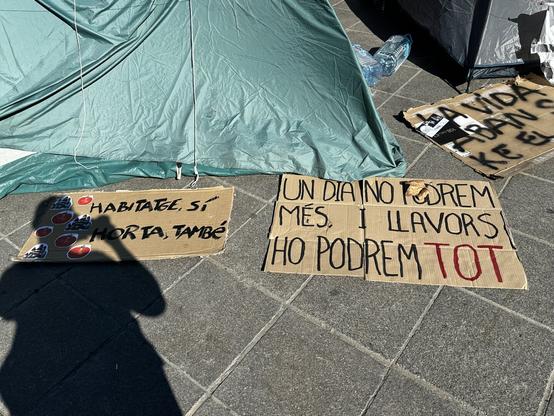 HABITATGE, SÍ
HORTA, TAMBÉ
UN DIA NO PODREM
MÉS, I LLAVORS
HO PODREM TOT
LA VIDA
ABANS
KE EL